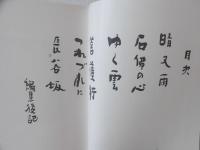 目次
晴又雨
石佛の心
ゆく雲
つれづれに
長谷坂
編集後記